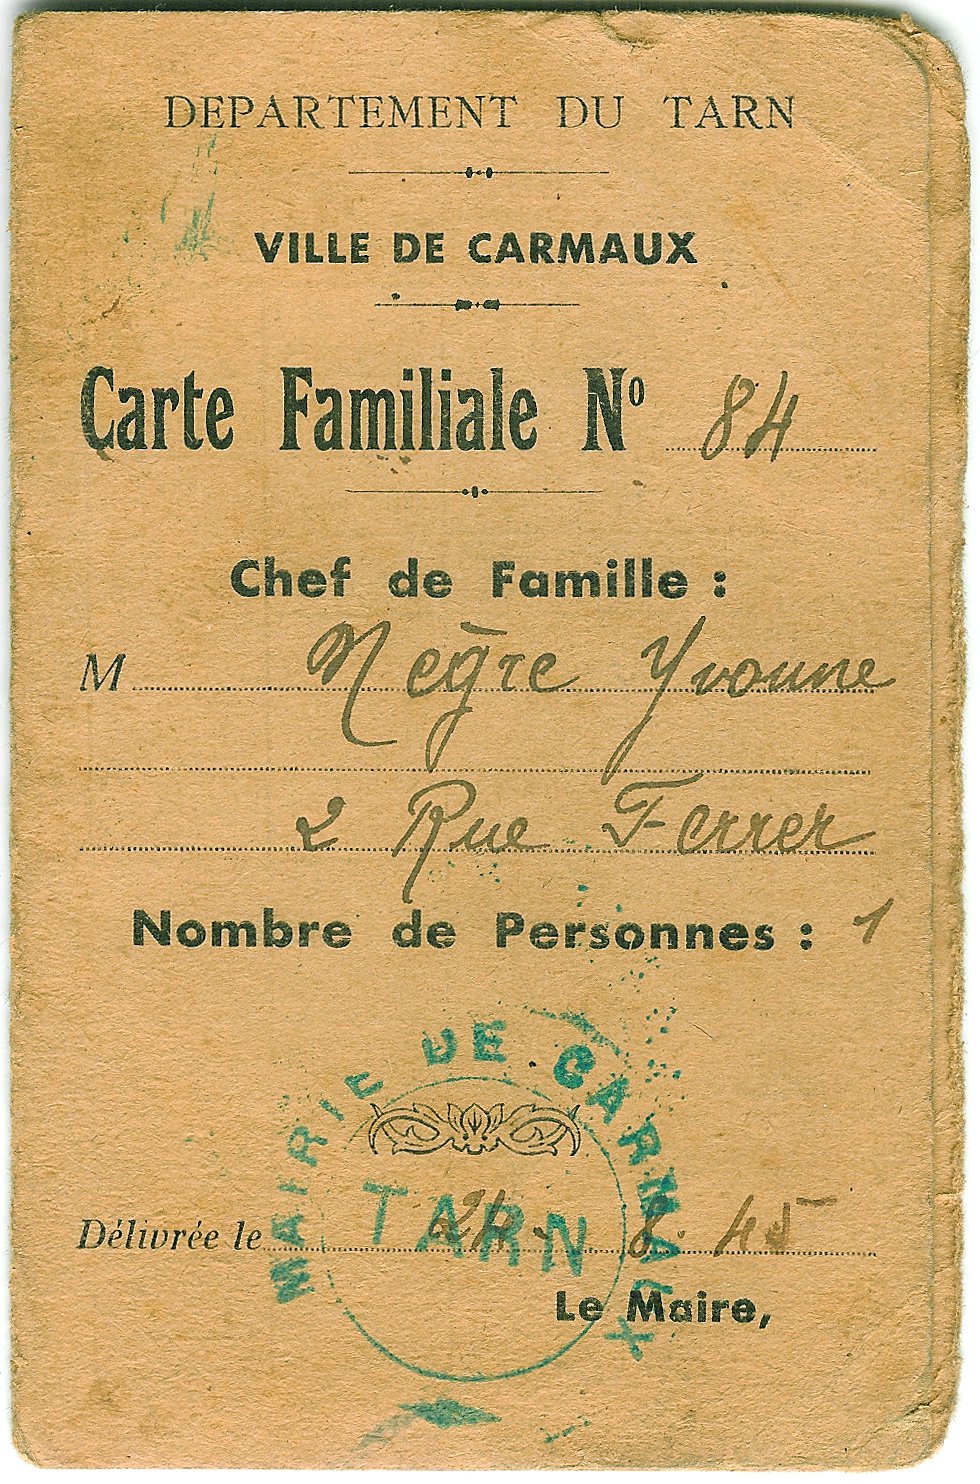 DEPARTEMENT DU TARN
VILLE DE CARMAUX
Carte Familiale Nº 84
Chef de Famille :
M Nègre Yvonne
2 Rue Ferrer
Nombre de Personnes : 1
MAIRIE DE CARMAUX
TARN
Délivrée le 24. 8. 45
Le Maire,